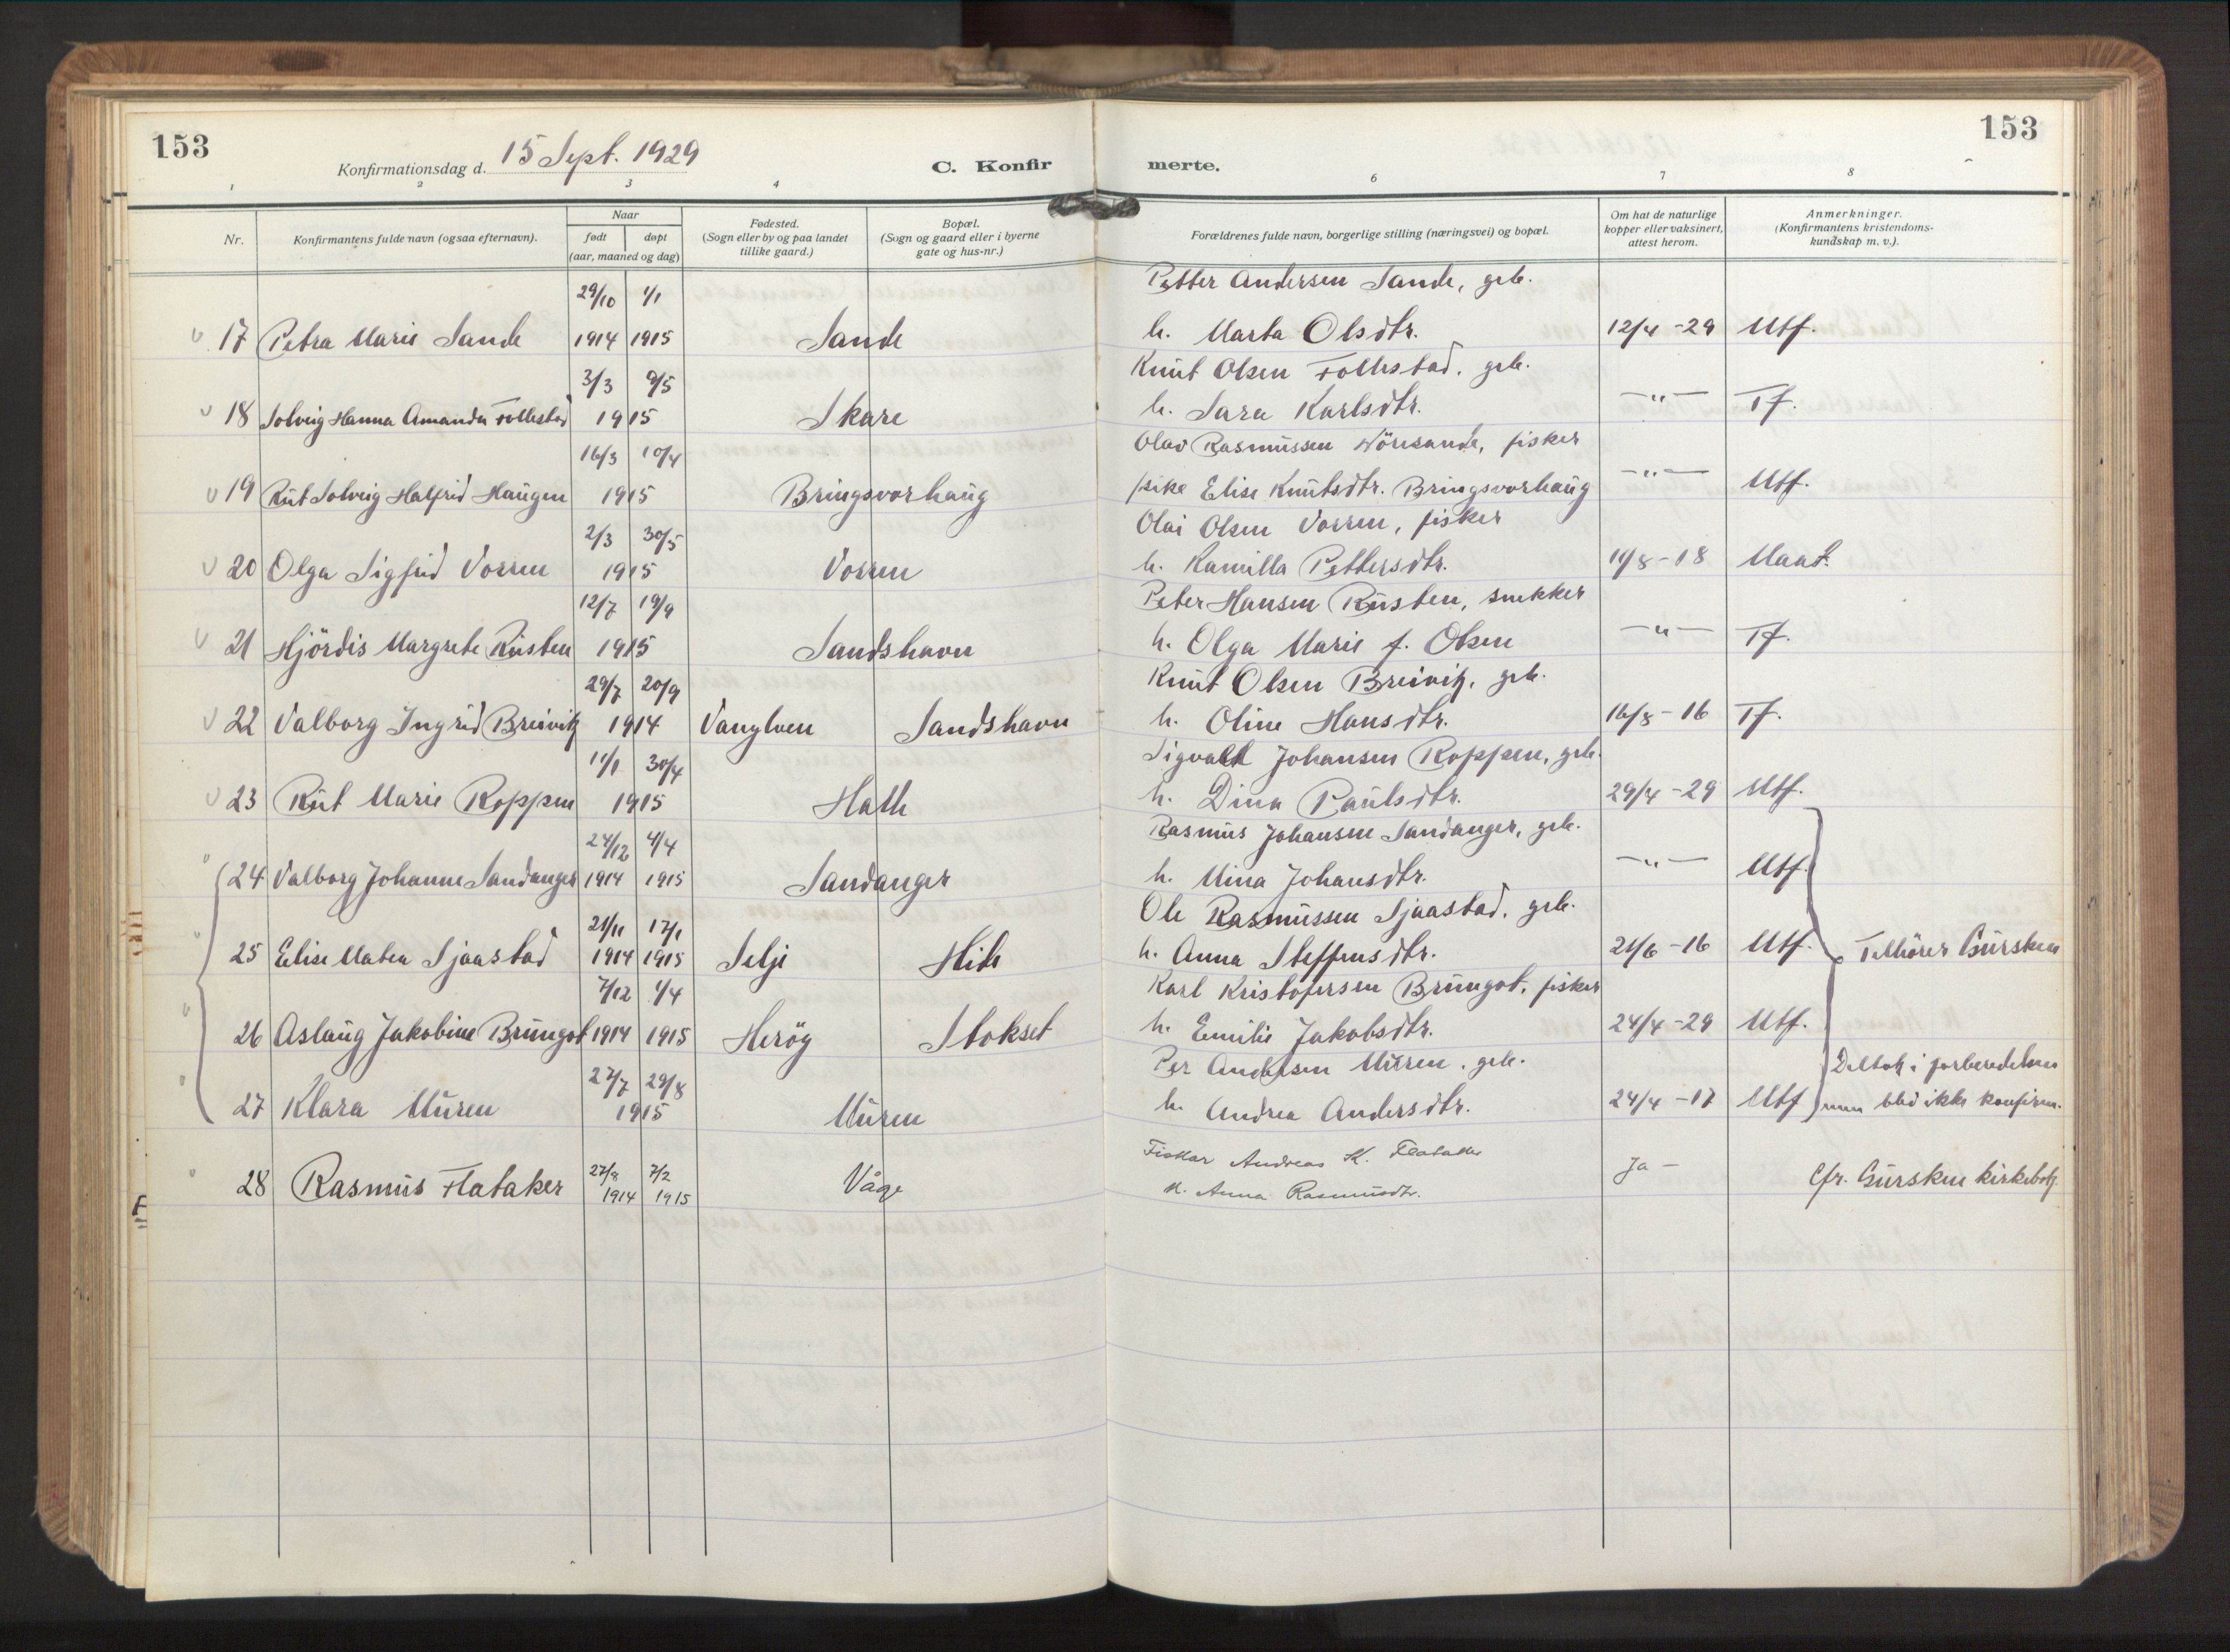 153
Konfirmationsdag d. 15 Sept. 1929
C. Konfir
merte.
153
1 2 3 4 6 7 8
Nr.
Konfirmantens fulde navn (ogsaa efternavn).
Naar
født
døpt
(aar, maaned og dag)
Fødested.
(Sogn eller by og paa landet
tillike gaard.)
Bopæl.
(Sogn og gaard eller i byerne
gate og hus-nr.)
Forældrenes fulde navn, borgerlige stilling (næringsvei) og bopæl.
Om hat de naturlige
kopper eller vaksinert,
attest herom.
Anmerkninger.
(Konfirmantens kristendoms-
kundskap m. v.).
29/10 1/1 Petter Andersen Sande, grb.
17 Petra Marie Sande 1914 1915 Sande h. Marta Olsdtr. 12/4 -29 Utf.
3/3 9/5 Knut Olsen Follestad, grb.
18 Solveig Hanna Amanda Follestad 1915 Skare h. Sara Karlsdtr. -"- Tf.
16/3 10/4 Olav Rasmussen Nöresande, fisker
19 Rut Solveig Halfrid Haugen 1915 Bringsvorhaug pike Elise Knutsdtr. Bringsvorhaug -"- Utf.
2/3 30/5 Olai Olsen Vorren, fisker
20 Olga Sigfrid Vorren 1915 Vorren h. Kamilla Pettersdtr. 11/8-18 Maat.
12/7 19/9 Peter Hansen Rusten, snekker
21 Hjördis Margrete Rusten 1915 Sandshavn h. Olga Marie f. Olsen -"- Tf.
29/7 20/9 Knut Olsen Breivik, grb.
22 Valborg Ingrid Breivik 1914 Vanylven Sandshavn h. Oline Hansdtr. 16/8-16 Tf.
11/1 30/4 Sigvald Johansen Roppen, grb.
23 Rut Marie Roppen 1915 Hatle h. Dina Paulsdtr. 29/4 -29 Utf.
24/12 4/4 Rasmus Johansen Sandanger, grb.
24 Valborg Johanne Sandanger 1914 1915 Sandanger h. Mina Johansdtr. -"- Utf.
21/11 17/1 Ole Rasmussen Sjaastad, grb.
25 Elise Matea Sjaastad 1914 1915 Selje Hide h. Anna Steffensdtr. 21/6 -16 Utf. Tilhörer Gursken
7/12 4/4 Karl Kristofersen Brungot, fisker
26 Aslaug Jakobine Brungot 1914 1915 Heröy Stokset h. Emilie Jakobsdtr. 24/4 -29 Utf.
27/7 29/8 Per Andersen Muren, grb. Deltok i forberedelsen
27 Klara Muren 1915 Muren h. Andrea Andersdtr. 24/4 -17 Utf men blev ikke konfirm.
27/8 7/2 Fisker Andreas K. Flataker
28 Rasmus Flataker 1914 1915 Våge h. Anna Rasmusdtr. Ja - Cfr. Gursken kirkebok